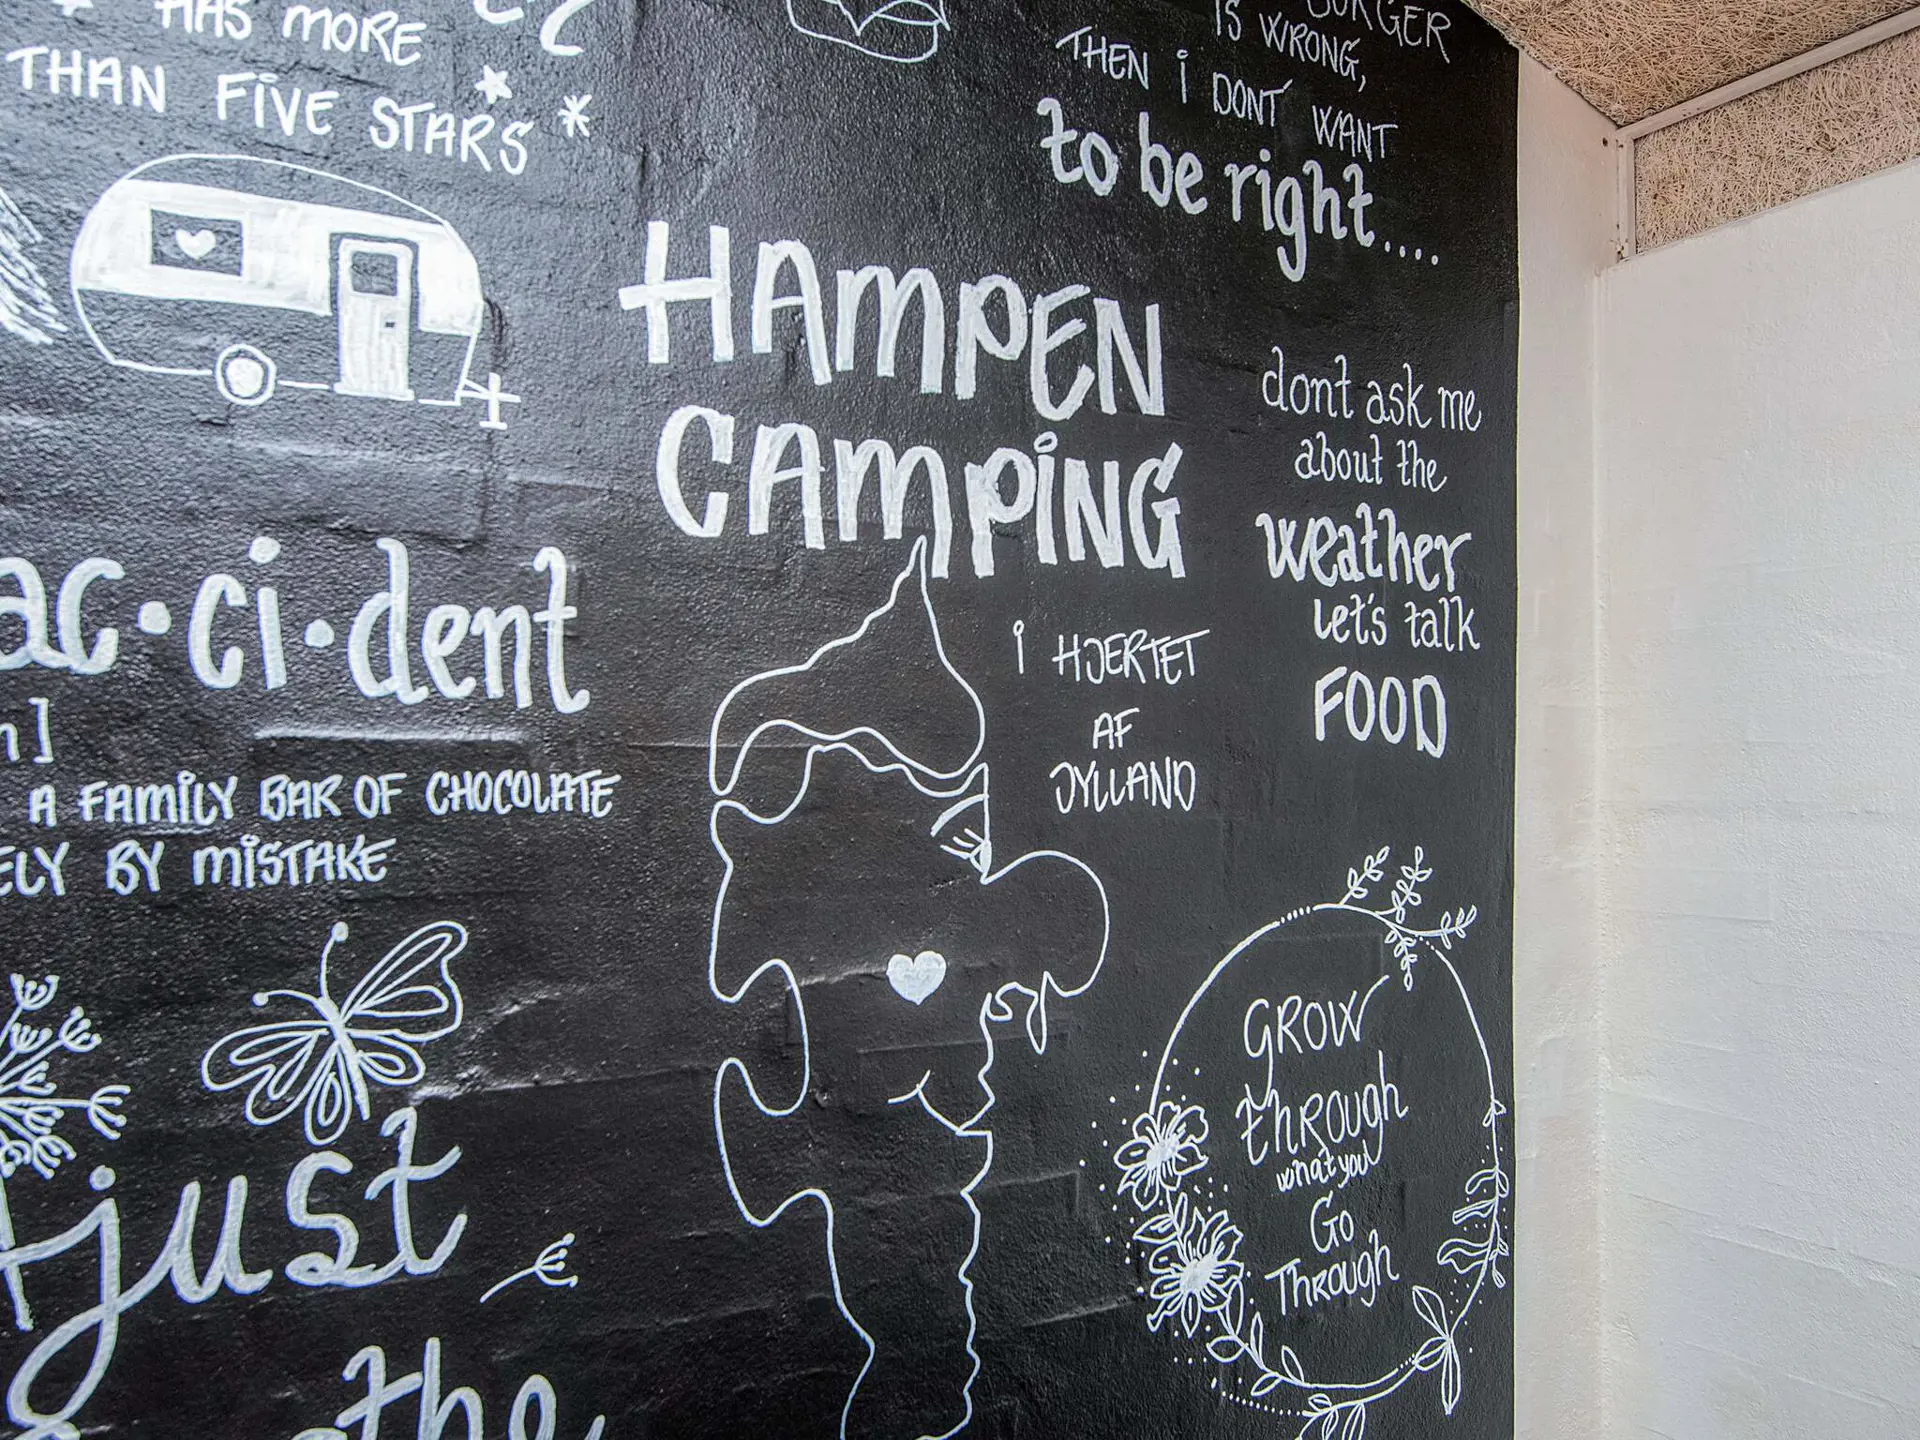 HAS MORE
THAN FIVE STARS
BURGER
IS WRONG,
THEN I DONT WANT
to be right....
HAMPEN
CAMPING
I HJERTET
AF
JYLLAND
dont ask me
about the
weather
Let's talk
FOOD
ac·ci·dent
n]
A FAMILY BAR OF CHOCOLATE
ELY BY MISTAKE
just
the
GROW
THROUGH
what you
GO
THROUGH